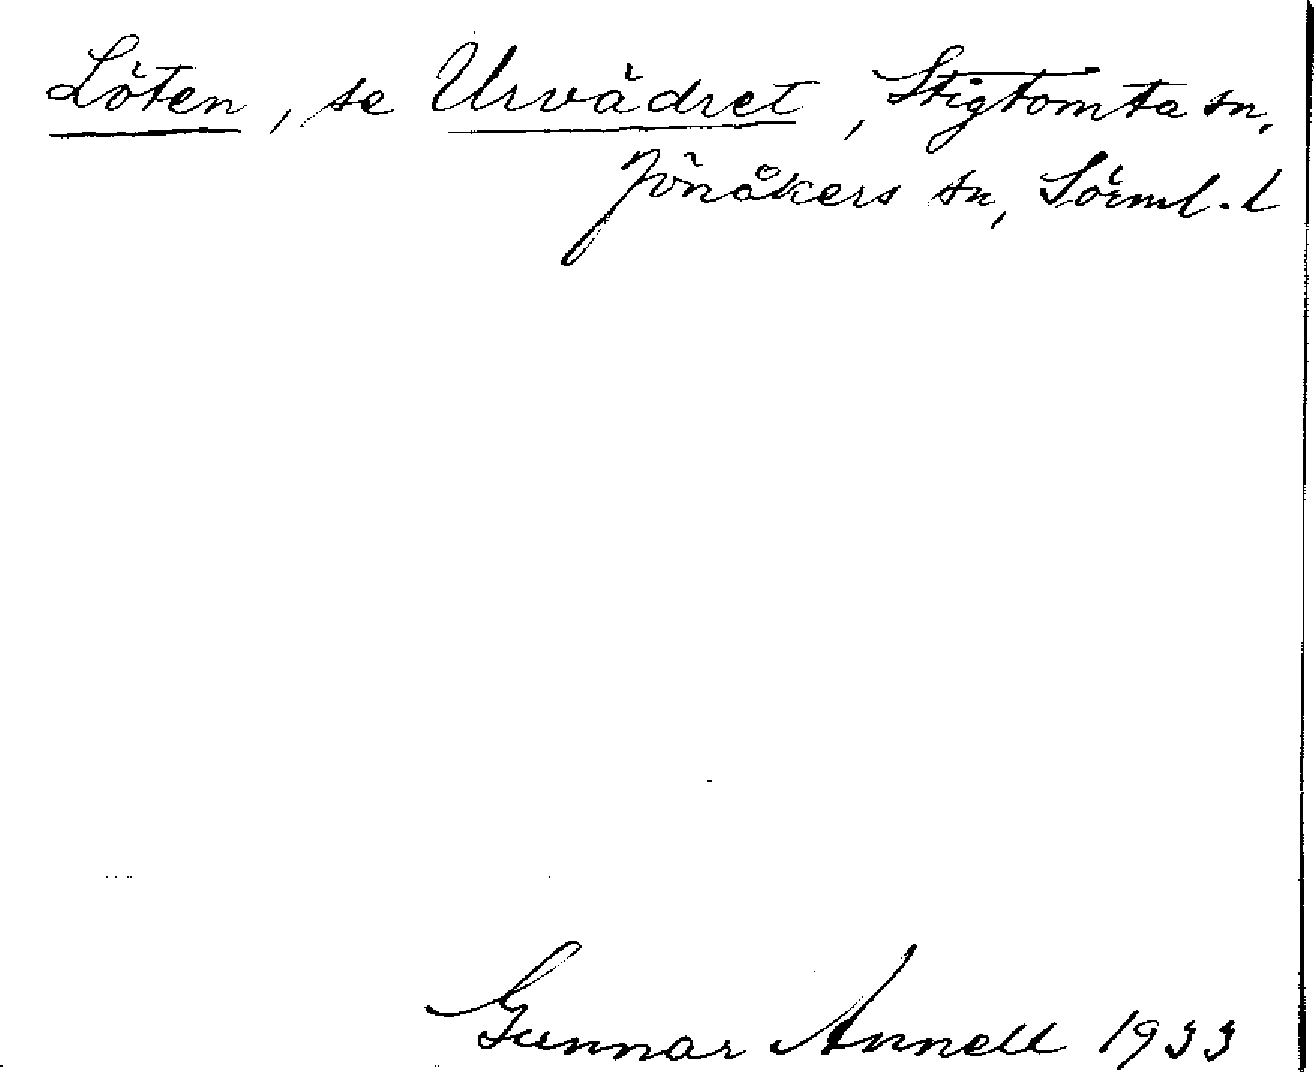 Löten, se Urvädret, Stigtomta sn,
Jönåkers sn, Sörml. l
Gunnar Annell 1933